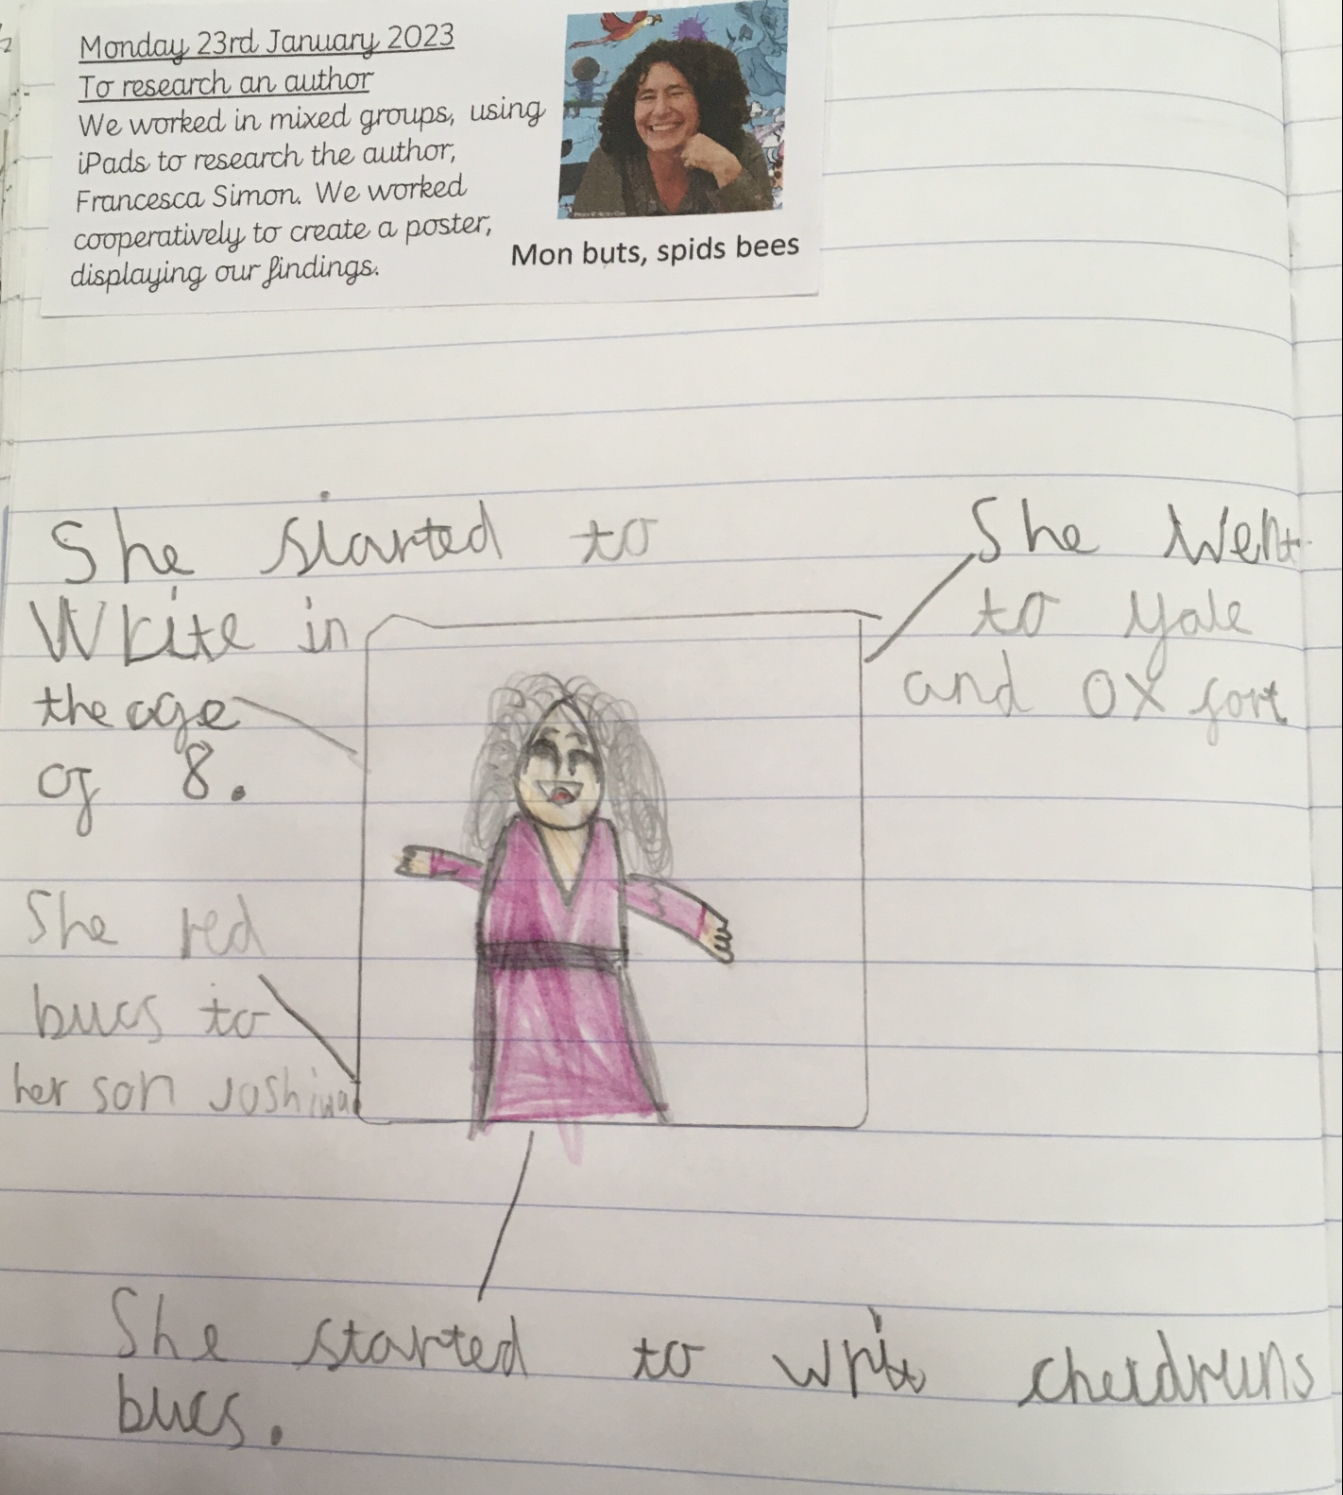 Monday 23rd January 2023
To research an author
We worked in mixed groups, using
iPads to research the author,
Francesca Simon. We worked
cooperatively to create a poster,
displaying our findings.
Mon buts, spids bees
She started to
Write in
the age
of 8.
She went
to yale
and OX fort
She red
bucs to
her son Joshiua
She started to write cheidruns
bucs.